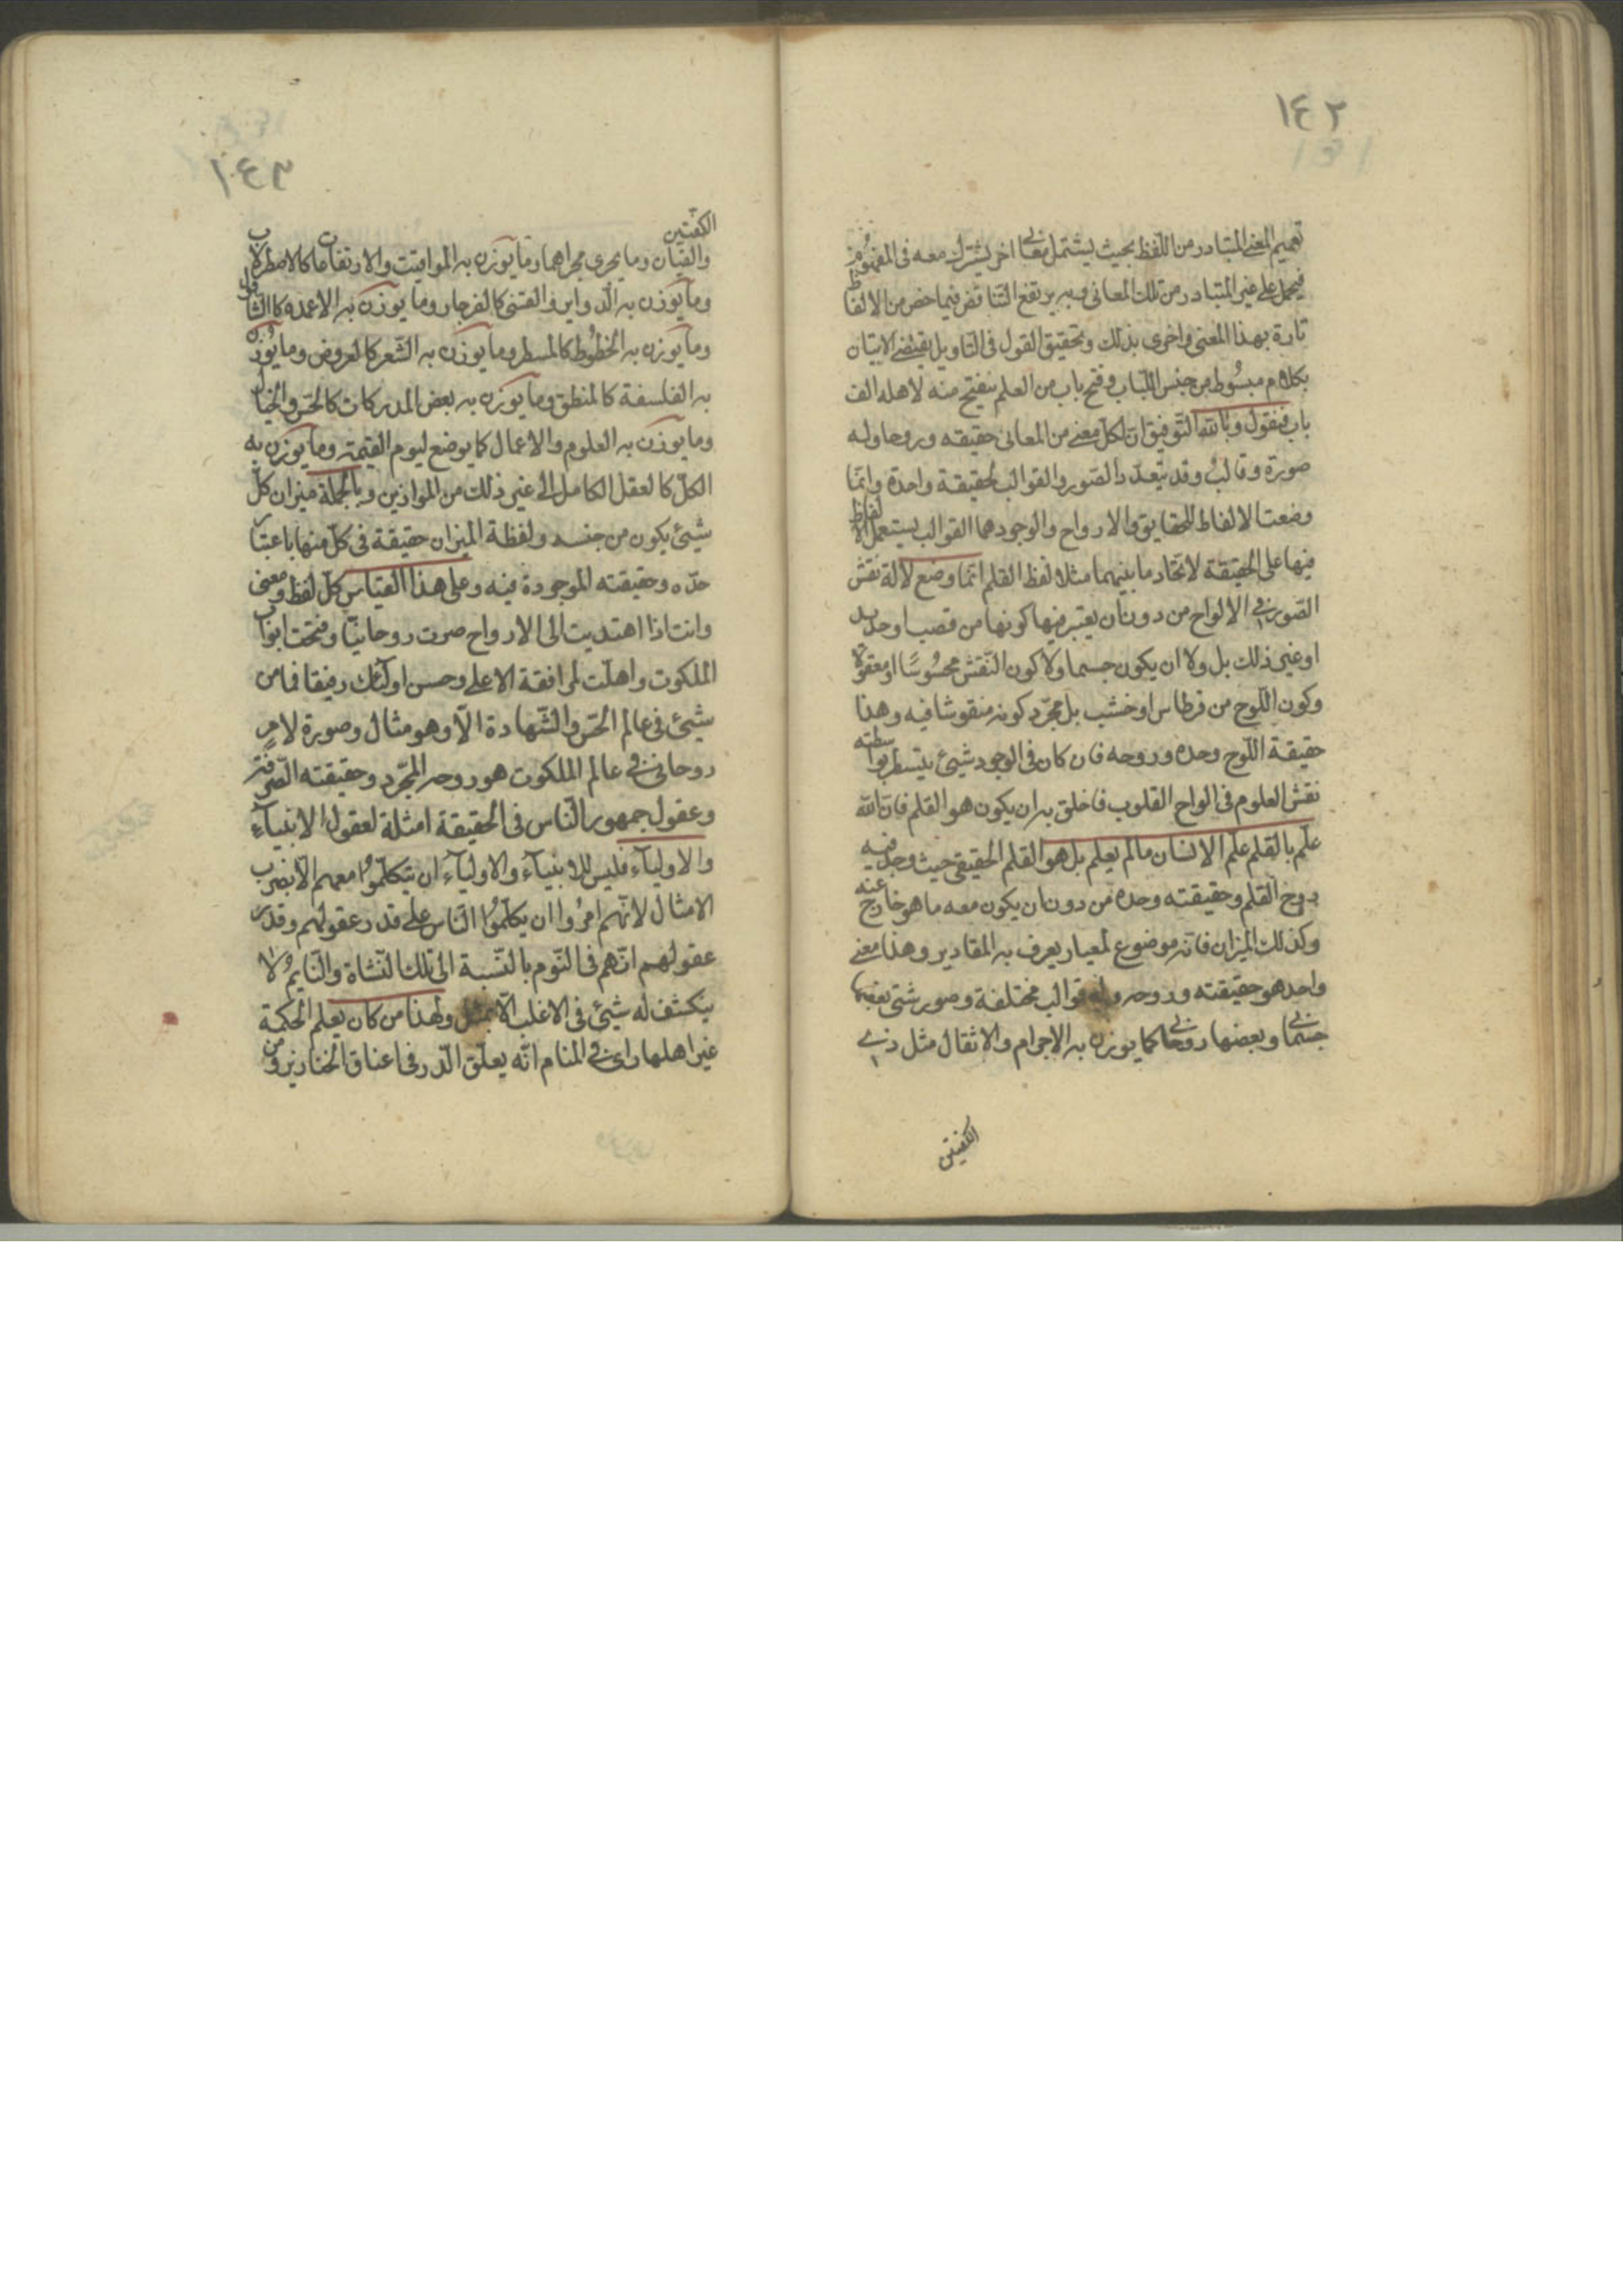 ١٤٢
تعميم المعنى المتبادر من اللفظ بحيث يشتمل معاني اخر يشترك معه في المفهوم
فيحمل على غير المتبادر من تلك المعاني وبه يرتفع التناقض فيما خص من الالفاظ
تارة بهذا المعنى واخرى بذلك وتحقيق القول في التاويل يقتضي الاتيان
بكلام مبسوط من جنس اللباب وفتح باب من العلم ينفتح منه لاهله الف
باب فنقول وبالله التوفيق ان لكل معنى من المعاني حقيقه وروحا وله
صورة وقالب وقد يتعدد الصور والقوالب لحقيقة واحدة وانما
وضعت الالفاظ للحقايق والارواح ولوجودهما القوالب يستعمل الالفاظ
فيها على الحقيقة لاتحاد ما بينهما مثلا لفظ القلم انما وضع لآلة نقش
الصور في الالواح من دون ان يعتبر فيها كونها من قصب او حديد
او غير ذلك بل ولا ان يكون جسما ولا كون النقش محسوسا او معقولا
وكون اللوح من قرطاس او خشب بل مجرد كونه منقوشا فيه وهذا
حقيقة اللوح وحده وروحه فان كان في الوجود شيئ يتسطر بواسطته
نقش العلوم في الواح القلوب فاخلق به ان يكون هو القلم فان الله
علم بالقلم علم الانسان مالم يعلم بل هو القلم الحقيقي حيث وجد فيه
روح القلم وحقيقته وحده من دون ان يكون معه ما هو خارج عنه
وكذلك الميزان فانه موضوع لمعيار يعرف به المقادير وهذا معنى
واحد هو حقيقته وروحه وله قوالب مختلفة وصور شتى بعضها
جسماني وبعضها روحاني كما يوزن به الاجرام والاثقال مثل ذي
الكفتين
١٤٣
الكفتين
والقبان وما يجري مجراهما وما يوزن به المواقيت والارتفاعات كالاصطرلاب
وما يوزن به الدواير والقسي كالفرجار وما يوزن به الاعمدة كالشاقول
وما يوزن به الخطوط كالمسطر وما يوزن به الشعر كالعروض وما يوزن
به الفلسفة كالمنطق وما يوزن به بعض المدركات كالحس والخيال
وما يوزن به العلوم والاعمال كما يوضع ليوم القيمة وما يوزن به
الكل كالعقل الكامل الى غير ذلك من الموازين وبالجملة ميزان كل
شيئ يكون من جنسه ولفظة الميزان حقيقة في كل منها باعتبار
حده وحقيقته الموجودة فيه وعلى هذا القياس كل لفظ ومعنى
وانت اذا اهتديت الى الارواح صرت روحانيا وفتحت ابواب
الملكوت واهلت لمرافقة الاعلى وحسن اولئك رفيقا فما من
شيئ في عالم الحس والشهادة الا وهو مثال وصورة لامر
روحاني في عالم الملكوت هو روحه المجرد وحقيقته الصرفة
وعقول جمهور الناس في الحقيقة امثلة لعقول الانبياء
والاولياء فليس للانبياء والاولياء ان يتكلموا معهم الا بضرب
الامثال لانهم امروا ان يكلموا الناس على قدر عقولهم وقدر
عقولهم انهم في النوم بالنسبة الى تلك النشاة والنايم لا
ينكشف له شيئ في الاغلب الا بمثل ولهذا من كان يعلم الحكمة
غير اهلها راى في المنام انه يعلق الدر في اعناق الخنازير ومن